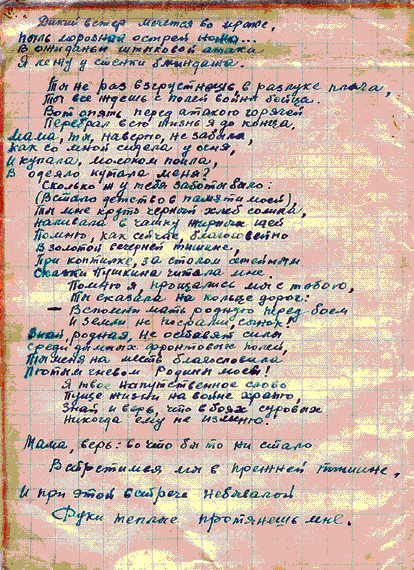 Дикий ветер мечется во мраке,
Пыль дорожная острей ножа...
В ожиданьи штыковой атаки
Я лежу у стенки блиндажа.
Ты не раз взгрустнешь, в разлуке плача,
Ты все ждешь с полей войны бойца.
Вот опять перед атакою горячей
Перебрал всю жизнь я до конца.
Мама, ты, наверно, не забыла,
Как со мной сидела у огня,
И купала, молоком поила,
В одеяло кутала меня?
Сколько ж у тебя заботы было:
(Встало детство в памяти моей)
Ты мне круто черный хлеб солила,
Наливала в чашку жирных щей
Помню, как сейчас, благоговейно
В золотой вечерней тишине,
При коптилке, за столом семейным
Сказки Пушкина читала мне.
Помню я, прощались мы с тобою,
Ты сказала на кольце дорог:
— Вспомни мать родную перед боем
И земли не посрами, сынок!
Знай, родная, не оставят силы
Среди дымных фронтовых полей,
Ты меня на месть благословила
Птотым гневом Родины моей!
Я твое напутственное слово
Пуще жизни на войне храню,
Знай и верь, что в боях суровых
Никогда ему не изменю.
Мама, верь: во что бы то ни стало
Встретимся мы в прежней тишине,
И при этой встрече небывалой
Руки теплые протянешь мне.